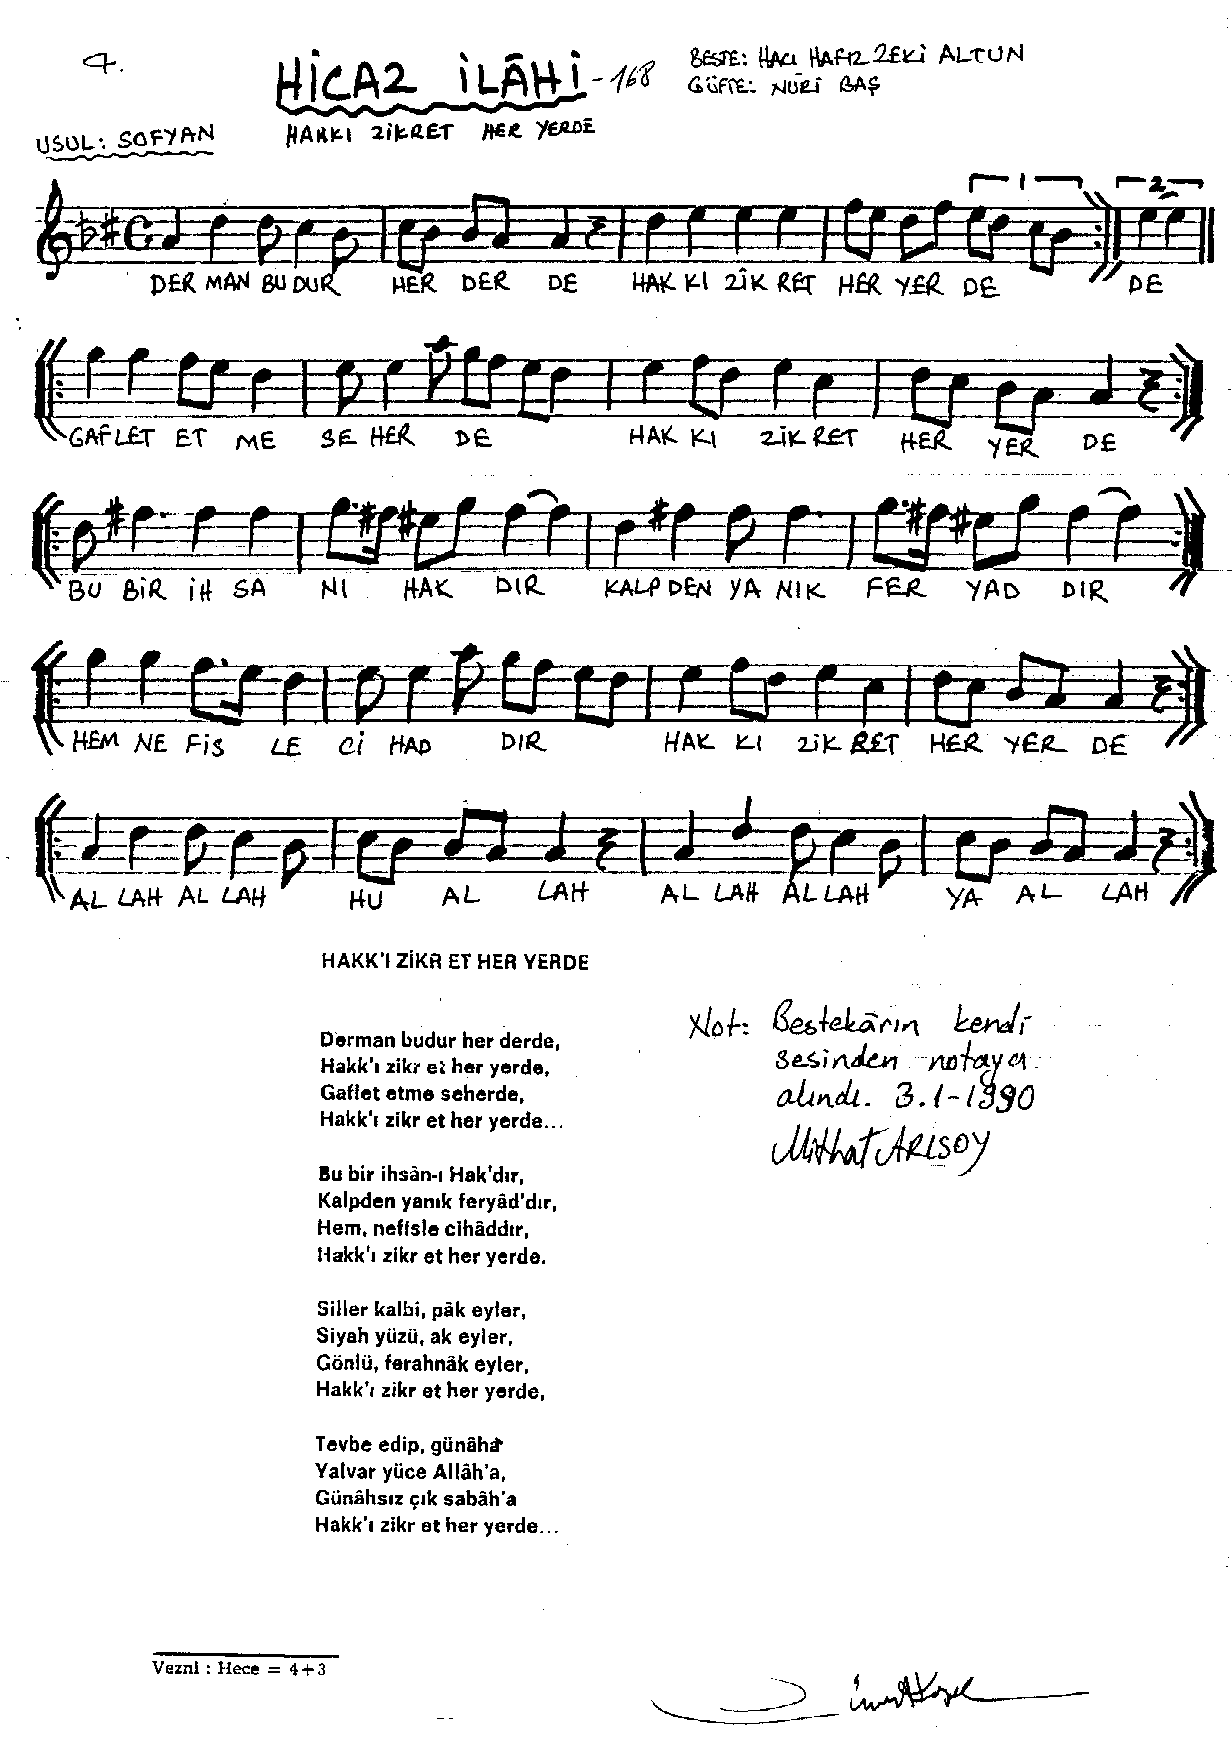 4.
HİCAZ İLÂHİ - 168
BESTE: HACI HAFIZ ZEKİ ALTUN
GÜFTE: NÛRİ BAŞ
USUL: SOFYAN
HAKKI ZİKRET HER YERDE
1 2
DER MAN BU DUR HER DER DE HAK KI ZİK RET HER YER DE DE
GAFLET ET ME SE HER DE HAK KI ZİK RET HER YER DE
BU BİR İH SA NI HAK DIR KALP DEN YA NIK FER YAD DIR
HEM NE FİS LE Cİ HAD DIR HAK KI ZİK RET HER YER DE
AL LAH AL LAH HU AL LAH AL LAH AL LAH YA AL LAH
HAKK'I ZİKR ET HER YERDE
Derman budur her derde,
Hakk'ı zikr et her yerde,
Gaflet etme seherde,
Hakk'ı zikr et her yerde...
Bu bir ihsân-ı Hak'dır,
Kalpden yanık feryâd'dır,
Hem, nefisle cihâddır,
Hakk'ı zikr et her yerde.
Siller kalbi, pâk eyler,
Siyah yüzü, ak eyler,
Gönlü, ferahnâk eyler,
Hakk'ı zikr et her yerde,
Tevbe edip, günâha
Yalvar yüce Allâh'a,
Günâhsız çık sabâh'a
Hakk'ı zikr et her yerde...
Not: Bestekârın kendi
sesinden notaya
alındı. 3.1-1990
Mithat ARISOY
Vezni : Hece = 4+3